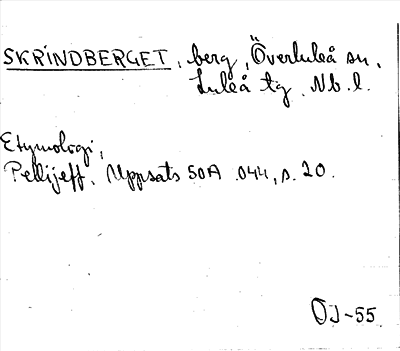 SKRINDBERGET, berg, Överluleå sn,
Luleå tg. Nb. l.
Etymologi,
Pellijeff, Uppsats 50A 044, s. 20.
OJ-55